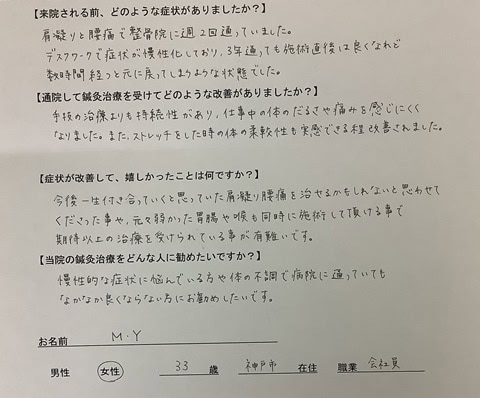 【来院される前、どのような症状がありましたか？】
肩凝りと腰痛で整骨院に週2回通っていました。
デスクワークで症状が慢性化しており、3年通っても施術直後は良くなれど
数時間経つと元に戻ってしまうような状態でした。
【通院して鍼灸治療を受けてどのような改善がありましたか？】
手技の治療よりも持続性があり、仕事中の体のだるさや痛みを感じにくく
なりました。また、ストレッチをした時の体の柔軟性も実感できる程改善されました。
【症状が改善して、嬉しかったことは何ですか？】
今後一生付き合っていくと思っていた肩凝り腰痛を治せるかもしれないと思わせて
くださった事や、元々弱かった胃腸や喉も同時に施術して頂ける事で
期待以上の治療を受けられている事が有難いです。
【当院の鍼灸治療をどんな人に勧めたいですか？】
慢性的な症状に悩んでいる方や体の不調で病院に通っていても
なかなか良くならない方にお勧めしたいです。
お名前 M.Y
男性 女性 33 歳 神戸市 在住 職業 会社員